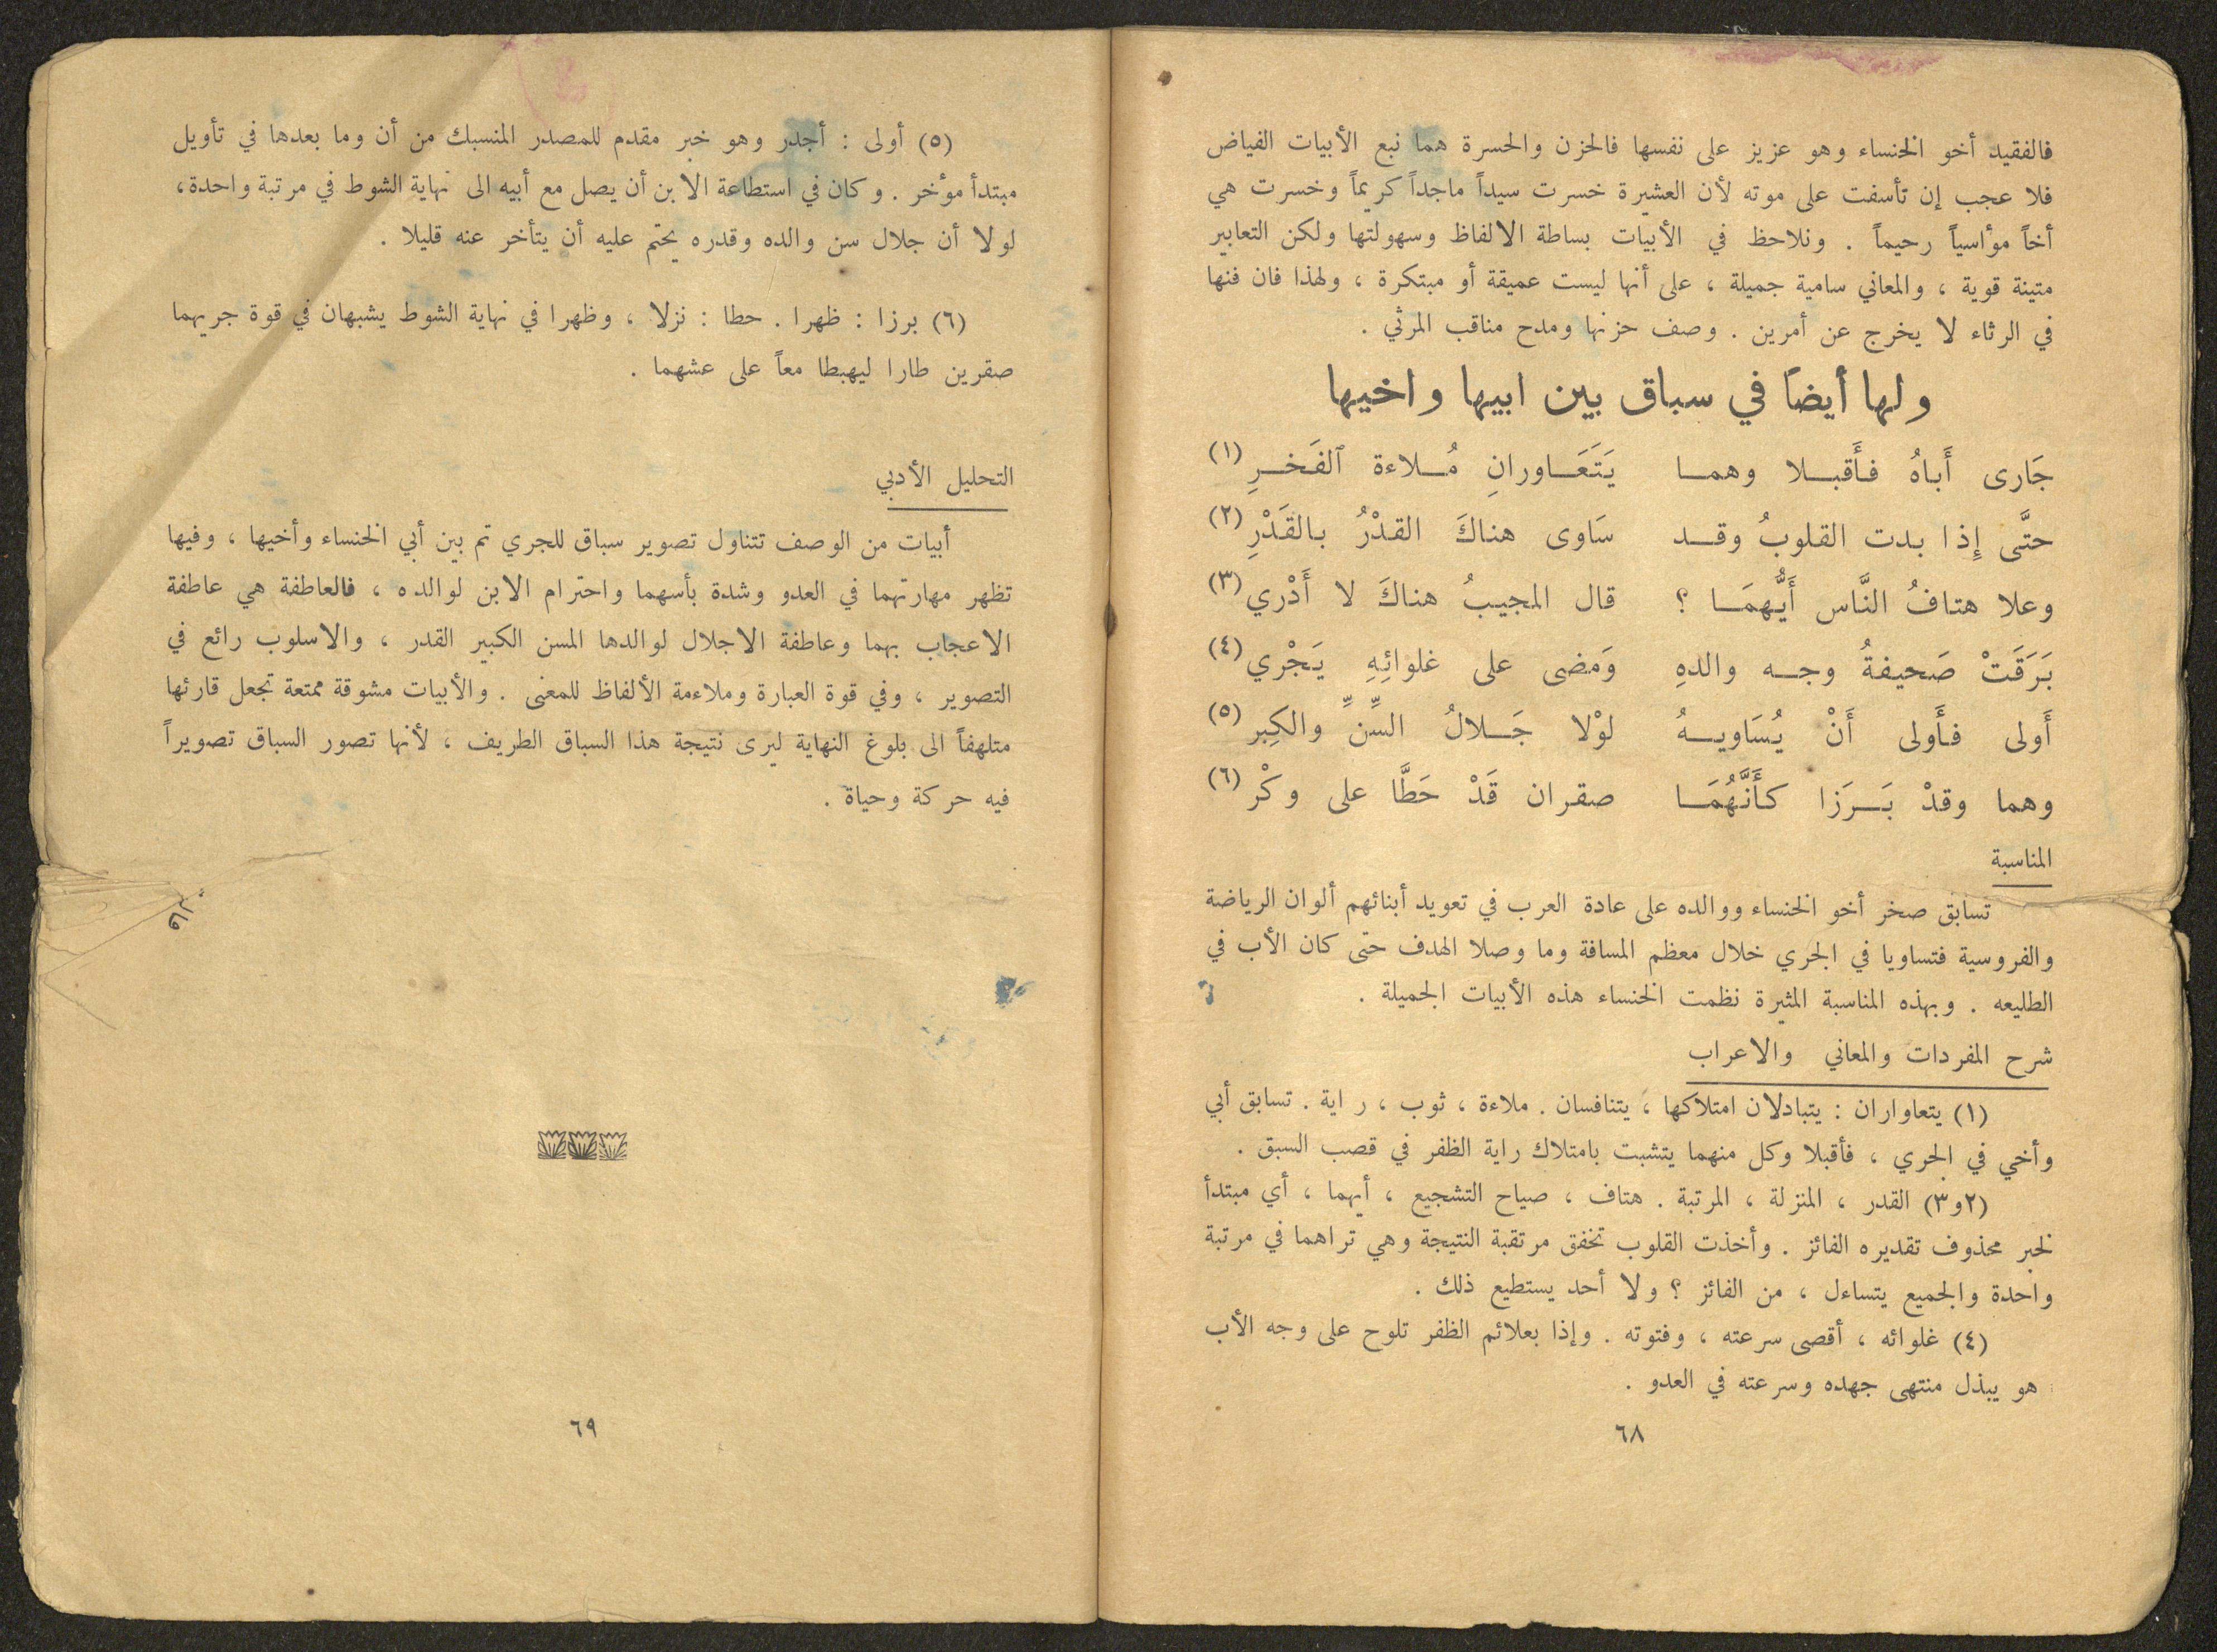 فالفقيد أخو الخنساء وهو عزيز على نفسها فالحزن والحسرة هما نبع الأبيات الفياض
فلا عجب إن تأسفت على موته لأن العشيرة خسرت سيداً ماجداً كريماً وخسرت هي
أخاً مؤاسياً رحيماً . ونلاحظ في الأبيات بساطة الالفاظ وسهولتها ولكن التعابير
متينة قوية ، والمعاني سامية جميلة ، على أنها ليست عميقة أو مبتكرة ، ولهذا فان فنها
في الرثاء لا يخرج عن أمرين . وصف حزنها ومدح مناقب المرثي .
ولها أيضاً في سباق بين ابيها واخيها
جَارى أَباهُ فأَقبلا وهما يَتَعَاورانِ مُلاءة ٱلفَخرِ (١)
حتَّى إِذا بدت القلوبُ وقد سَاوى هناكَ القدْرُ بالقَدْرِ (٢)
وعلا هتافُ النَّاس أَيُّهمَا ؟ قال المجيبُ هناكَ لا أَدْري (٣)
بَرَقَتْ صَحيفةُ وجه والدهِ وَمضى على غلوائِهِ يَجْري (٤)
أَولى فأَولى أَنْ يُسَاويهُ لوْلا جَلالُ السِّنِّ والكِبر (٥)
وهما وقدْ بَرَزا كأَنَّهُمَا صقران قَدْ حَطَّا على وكْر (٦)
المناسبة
تسابق صخر أخو الخنساء ووالده على عادة العرب في تعويد أبنائهم ألوان الرياضة
والفروسية فتساويا في الجري خلال معظم المسافة وما وصلا الهدف حتى كان الأب في
الطليعه . وبهذه المناسبة المثيرة نظمت الخنساء هذه الأبيات الجميلة .
شرح المفردات والمعاني والاعراب
(١) يتعاواران : يتبادلان امتلاكها ، يتنافسان . ملاءة ، ثوب ، راية . تسابق أبي
وأخي في الجري ، فأقبلا وكل منهما يتشبت بامتلاك راية الظفر في قصب السبق .
(٢و٣) القدر ، المنزلة ، المرتبة . هتاف ، صياح التشجيع ، أيهما ، أي مبتدأ
لخبر محذوف تقديره الفائز . وأخذت القلوب تخفق مرتقبة النتيجة وهي تراهما في مرتبة
واحدة والجميع يتساءل ، من الفائز ؟ ولا أحد يستطيع ذلك .
(٤) غلوائه ، أقصى سرعته ، وفتوته . وإذا بعلائم الظفر تلوح على وجه الأب
هو يبذل منتهى جهده وسرعته في العدو .
٦٨
(٥) أولى : أجدر وهو خبر مقدم للمصدر المنسبك من أن وما بعدها في تأويل
مبتدأ مؤخر . وكان في استطاعة الابن أن يصل مع أبيه الى نهاية الشوط في مرتبة واحدة ،
لولا أن جلال سن والده وقدره يحتم عليه أن يتأخر عنه قليلا .
(٦) برزا : ظهرا . حطا : نزلا ، وظهرا في نهاية الشوط يشبهان في قوة جريهما
صقرين طارا ليهبطا معاً على عشهما .
التحليل الأدبي
أبيات من الوصف تتناول تصوير سباق للجري تم بين أبي الخنساء وأخيها ، وفيها
تظهر مهارتهما في العدو وشدة بأسهما واحترام الابن لوالده ، فالعاطفة هي عاطفة
الاعجاب بهما وعاطفة الاجلال لوالدها المسن الكبير القدر ، والاسلوب رائع في
التصوير ، وفي قوة العبارة وملاءمة الألفاظ للمعنى . والأبيات مشوقة ممتعة تجعل قارئها
متلهفاً الى بلوغ النهاية ليرى نتيجة هذا السباق الطريف ، لأنها تصور السباق تصويراً
فيه حركة وحياة .
٦٩